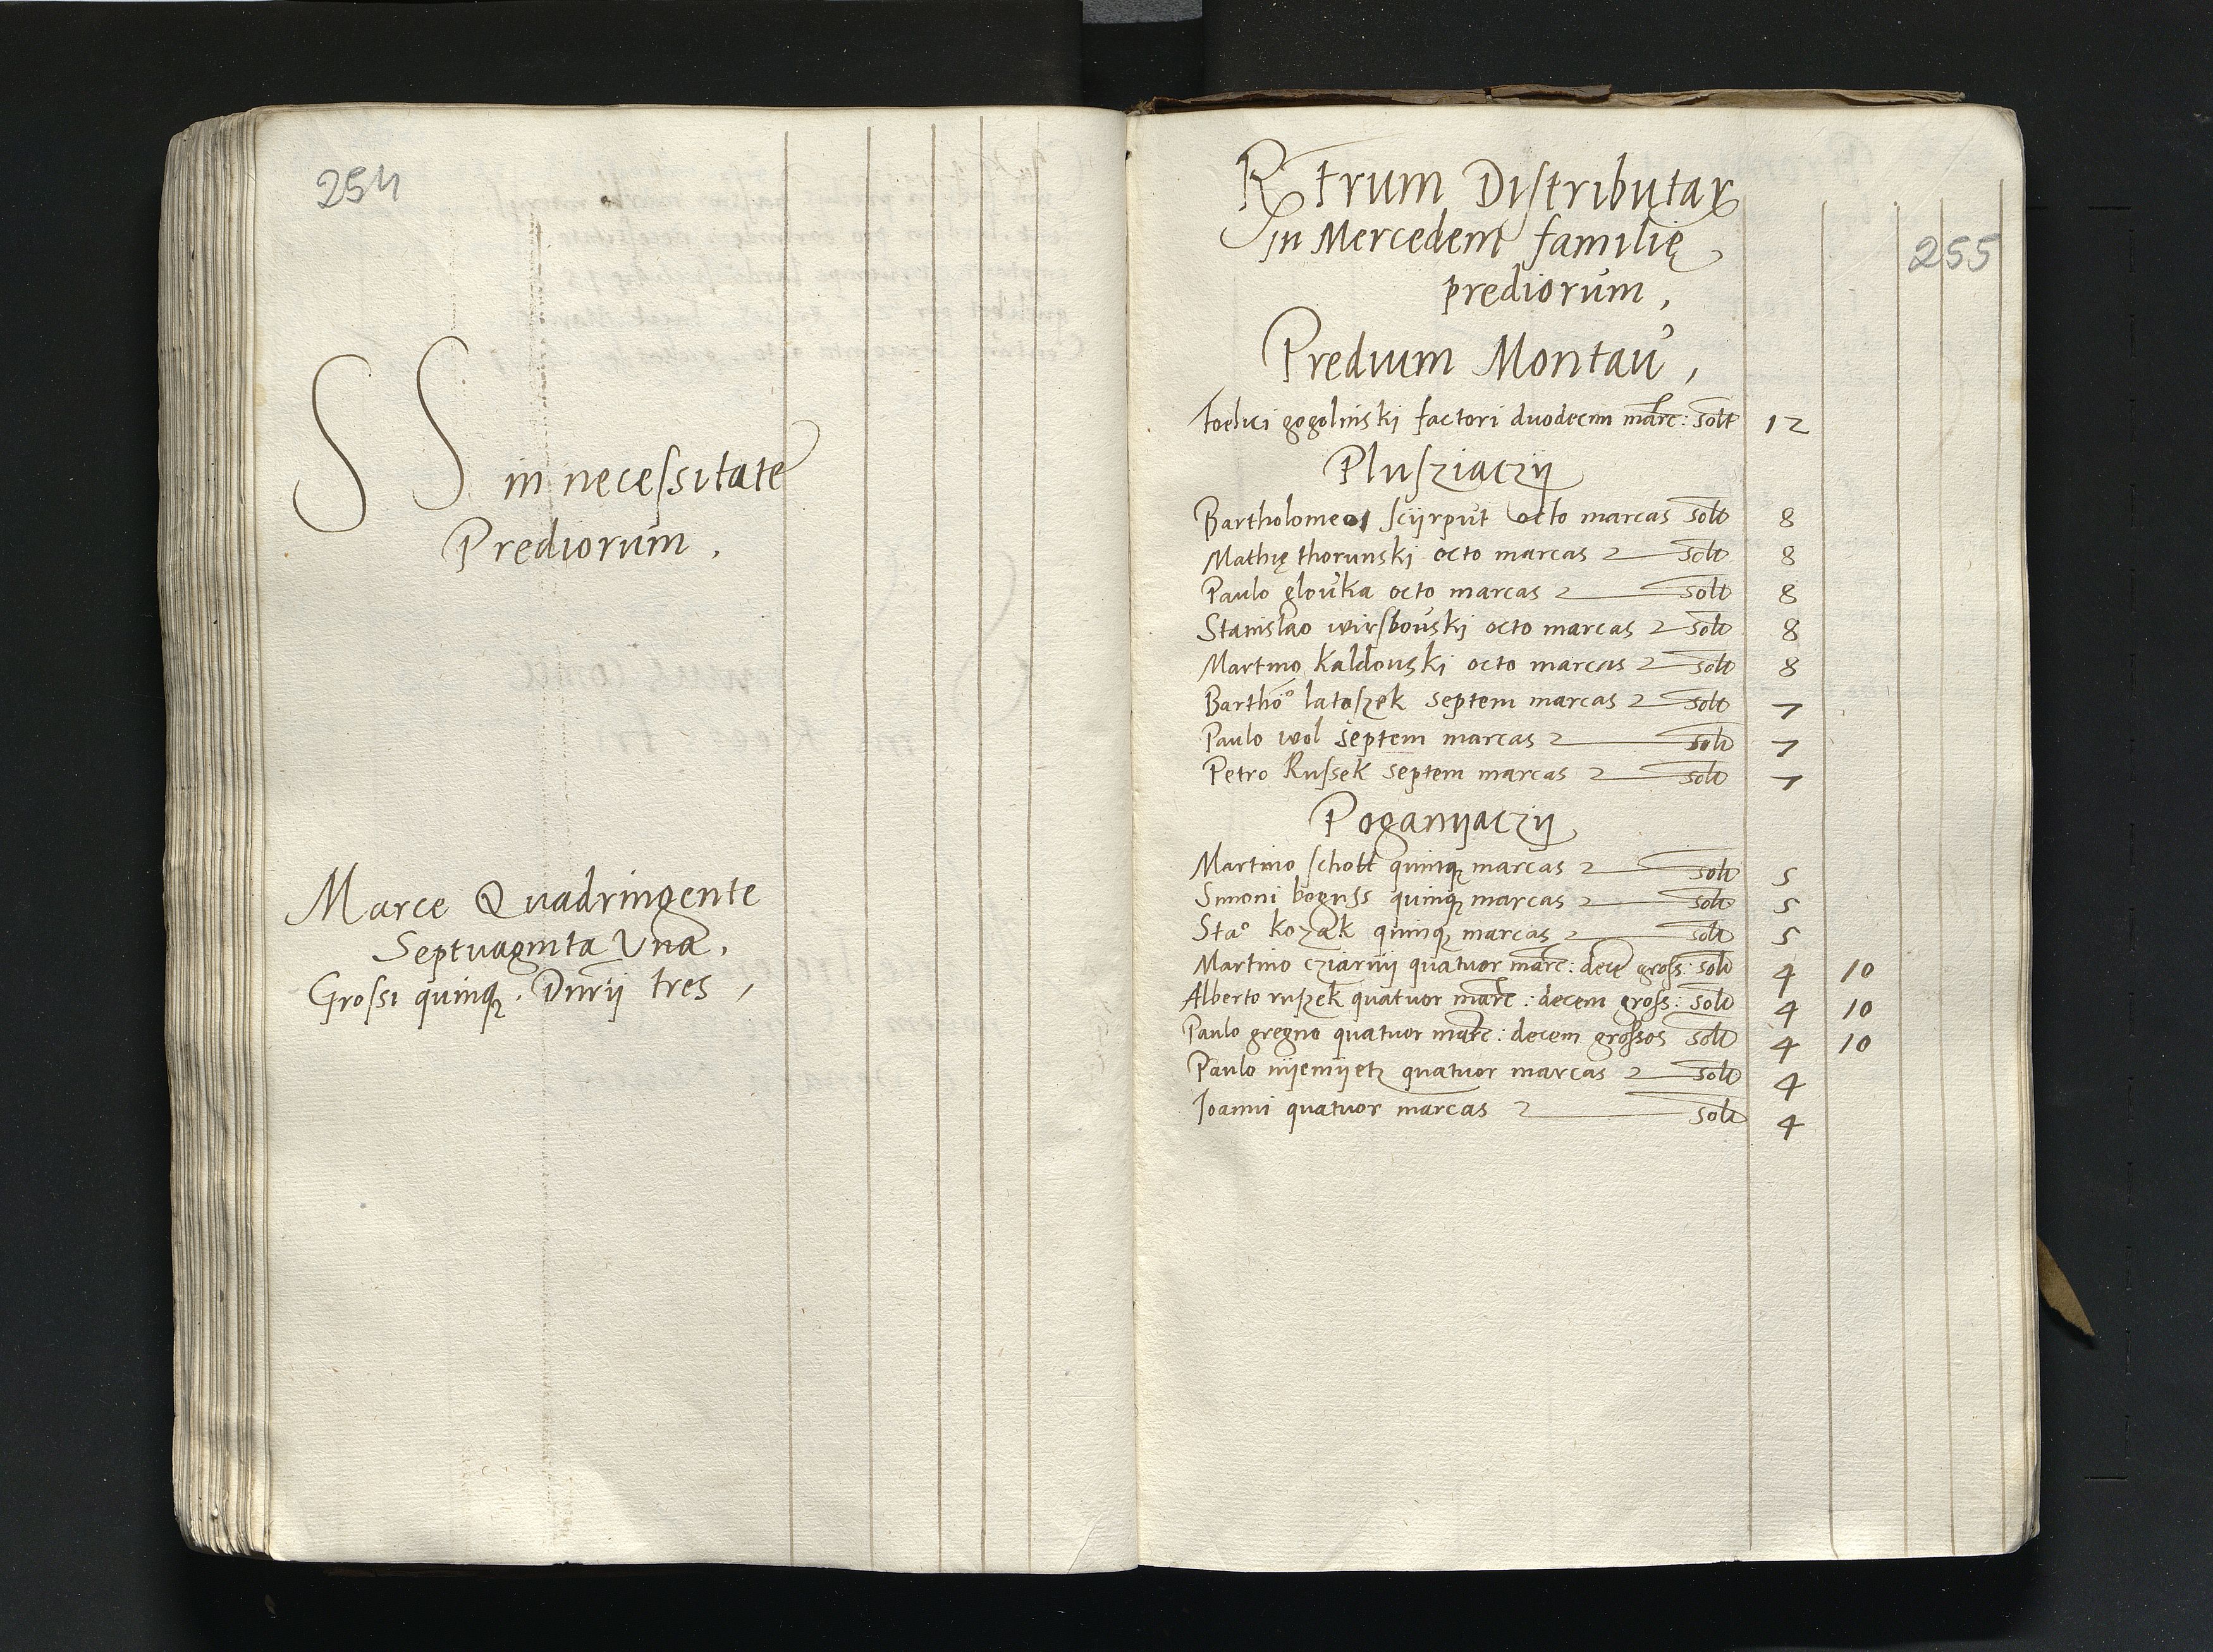 254
SS in necessitate
Prediorum.
Marce Quadringente
Septuaginta Una.
Grossi quinq. Dnrij tres,
Rtrum Distributar
in Mercedem familię
prediorum,
255
Predium Montau,
gogolinski factori duodecim marc: solt 12
Plusziaczij
Bartholomeo scijrput octo marcas solt 8
Mathię thorunski octo marcas solt 8
Paulo glouka octo marcas solt 8
Stanislao wirsbouski octo marcas solt 8
Martino kaldouski octo marcas solt 8
Bartho° latoszek septem marcas solt 7
Paulo wol septem marcas solt 7
Petro Russek septem marcas solt 7
Poganijaczij
Martino schott quinq marcas solt 5
Simoni boguss quinq marcas solt 5
Sta° kozak quinq marcas solt 5
Martino cziarnij quatuor marc: dece gross: solt 4 10
Alberto ruszek quatuor marc: decem gross: solt 4 10
Paulo gregno quatuor marc: decem grossos solt 4 10
Paulo nijemijetz quatuor marcas solt 4
Joanni quatuor marcas solt 4